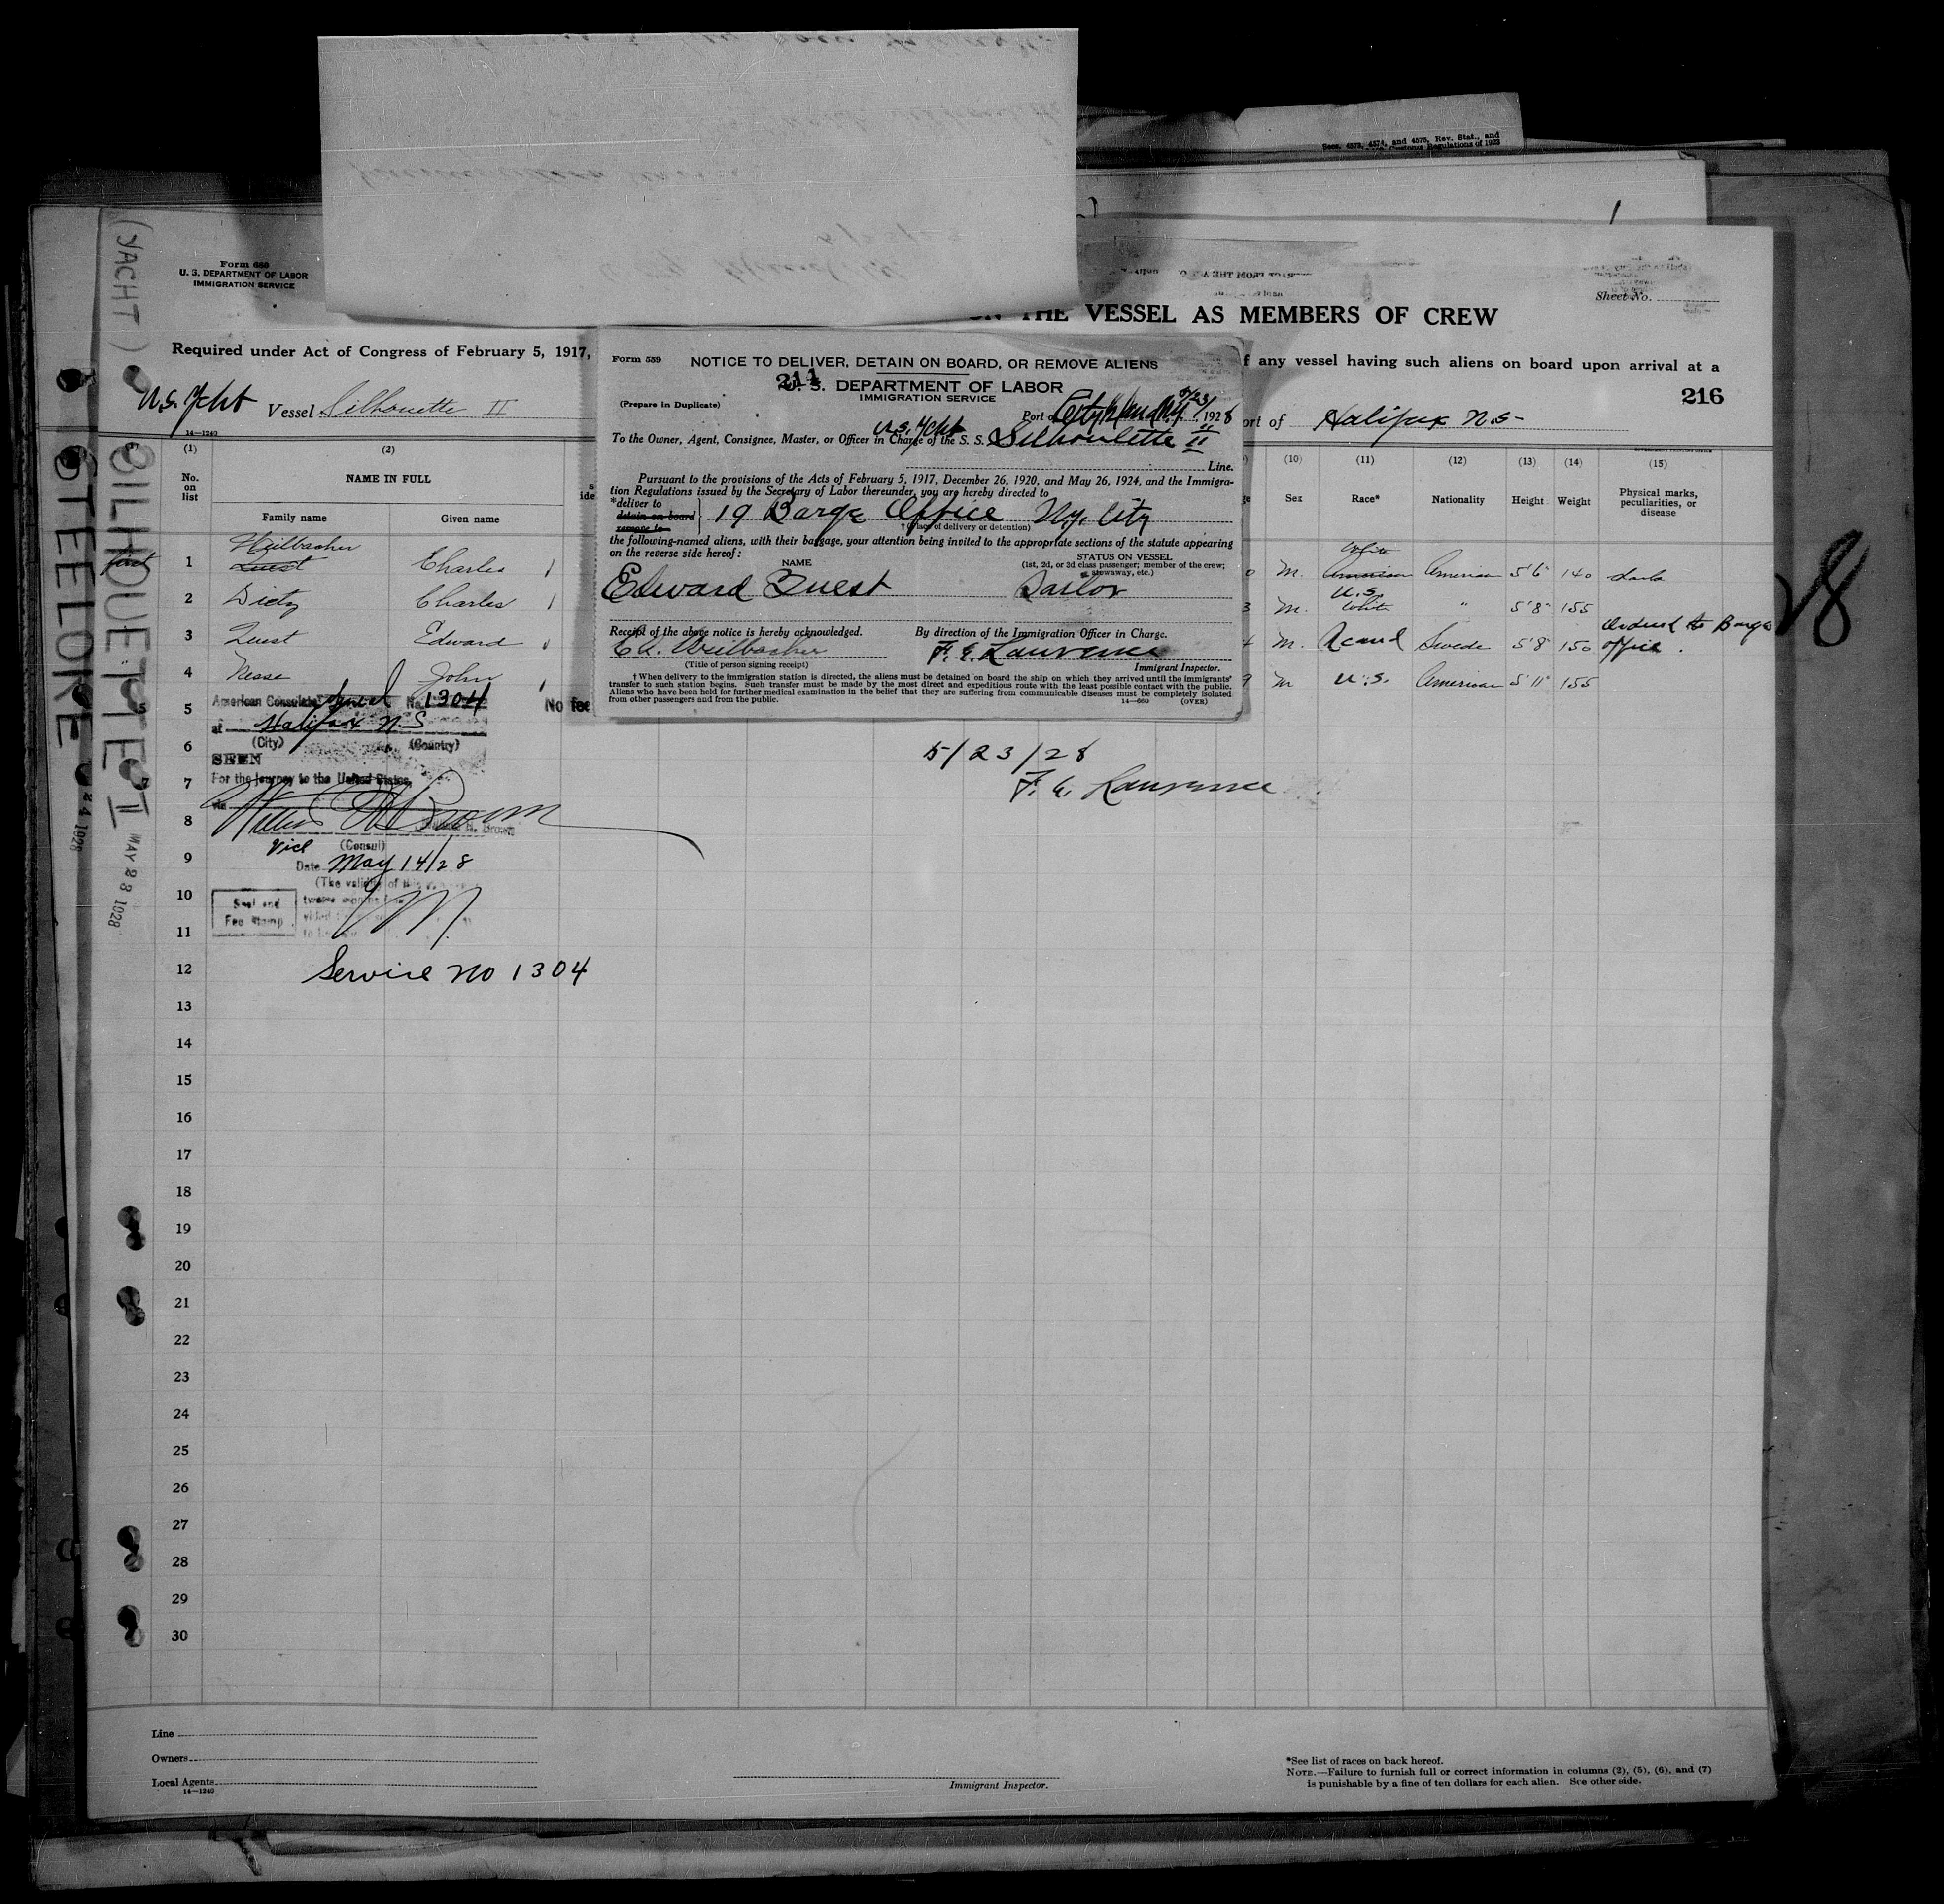 Secs. 4573, 4574, and 4575, Rev. Stat., and
Customs Regulations of 1923
Form 689
U. S. DEPARTMENT OF LABOR
IMMIGRATION SERVICE
Sheet No.
THE VESSEL AS MEMBERS OF CREW
Required under Act of Congress of February 5, 1917,
f any vessel having such aliens on board upon arrival at a
216
U.S. Ycht Vessel Silhouette II
ort of Halifax N.S.
14-1240
(1) (2) (10) (11) (12) (13) (14) (15)
No. on list
NAME IN FULL
Family name Given name
Sex Race* Nationality Height Weight Physical marks, peculiarities, or disease
1 Heilbacher Quest Charles M. White American American 5'6" 140
2 Dietz Charles M. U.S. White " 5'8" 155
3 Quest Edward M. Scand Swede 5'8" 150 Ordered to Barge office.
4 Nesse John M U.S. American 5'11" 155
5
6
7
8
9
10
11
12
13
14
15
16
17
18
19
20
21
22
23
24
25
26
27
28
29
30
American Consulate General No. 1304
No fee
at Halifax N.S
(City) (Country)
SEEN
For the journey to the United States,
via
Vice (Consul)
Date May 14/28
(The validity of
Seal and
Fee Stamp
Service no 1304
Form 539
NOTICE TO DELIVER, DETAIN ON BOARD, OR REMOVE ALIENS
214
U. S. DEPARTMENT OF LABOR
IMMIGRATION SERVICE
(Prepare in Duplicate)
Port of 5/23/ 1928
U.S. Ycht
To the Owner, Agent, Consignee, Master, or Officer in Charge of the S. S. Silhoulette II
Line.
Pursuant to the provisions of the Acts of February 5, 1917, December 26, 1920, and May 26, 1924, and the Immigra-
tion Regulations issued by the Secretary of Labor thereunder, you are hereby directed to
*deliver to
detain on board
remove to
19 Barge Office N.Y. City
† (Place of delivery or detention)
the following-named aliens, with their baggage, your attention being invited to the appropriate sections of the statute appearing
on the reverse side hereof:
NAME
STATUS ON VESSEL
(1st, 2d, or 3d class passenger; member of the crew;
stowaway, etc.)
Edward Quest Sailor
Receipt of the above notice is hereby acknowledged.
By direction of the Immigration Officer in Charge.
F. E. Lawrence
(Title of person signing receipt)
Immigrant Inspector.
† When delivery to the immigration station is directed, the aliens must be detained on board the ship on which they arrived until the immigrants'
transfer to such station begins. Such transfer must be made by the most direct and expeditious route with the least possible contact with the public.
Aliens who have been held for further medical examination in the belief that they are suffering from communicable diseases must be completely isolated
from other passengers and from the public.
14-660 (OVER)
5/23/28
F. E. Lawrence
(YACHT)
SILHOUETTE II
MAY 23 1928
STEELORE
28
Line
Owners
Local Agents
14-1240
Immigrant Inspector.
*See list of races on back hereof.
NOTE.—Failure to furnish full or correct information in columns (2), (5), (6), and (7)
is punishable by a fine of ten dollars for each alien. See other side.